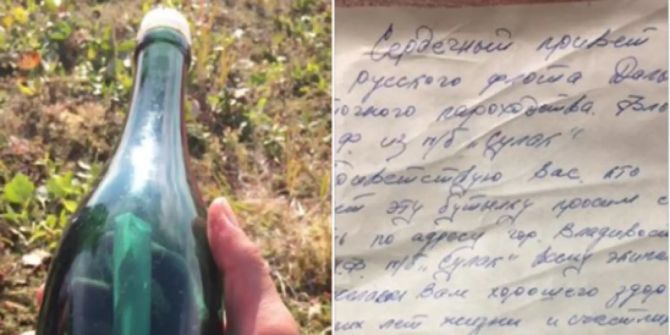 Сердечный привет
русского флота Дал
точного пароходства. Вл
ф. из п/б „Сулак"
риветствую Вас, кто
ет эту бутылку просим с
ь по адресу гор. Владивос
.ф. п/б „Сулак" всему экипа
елаем Вам хорошего здор
их лет жизни и счастли